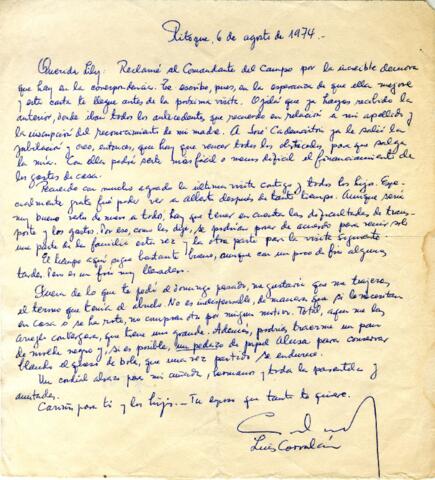 Ritoque, 6 de agosto de 1974.-
Querida Lily: Reclamé al Comandante del Campo por la increíble demora
que hay en la correspondencia. Te escribo, pues, en la esperanza de que ella mejore
y esta carta te llegue antes de la próxima visita. Ojalá que ya hayas recibido la
anterior, donde iban todos los antecedentes que recuerdo en relación a mi apellido y
la inscripción del reconocimiento de mi madre. A José Cademártori ya le salió la
jubilación y creo, entonces, que hay que vencer todos los obstáculos para que salga
la mía. Con ellas podrá serte más fácil o menos difícil el financiamiento de
los gastos de casa.
Recuerdo con mucho agrado la última visita contigo y todos los hijos. Espe-
cialmente grato fue poder ver a Alberto después de tanto tiempo. Aunque sería
muy bueno verlos de nuevo a todos, hay que tener en cuenta las dificultades de trans-
porte y los gastos. Por eso, como les dije, se podrían poner de acuerdo para venir sólo
una parte de la familia esta vez y la otra parte para la visita siguiente.
El tiempo aquí sigue bastante bueno, aunque con un poco de frío algunas
tardes. Pero es un frío muy llevadero.
Fuera de lo que te pedí el Domingo pasado, me gustaría que me trajeras
el termo que tenía el abuelo. No es indispensable, de manera que si lo necesitan
en casa o se ha roto, no comprarlo por ningún motivo. Total, aquí me las
arreglo con que tiene una grande. Además, podrías traerme un paño
negro y, si es posible, un pedazo de papel Alusa para conservar
blando el queso de bola, que una vez partido se endurece.
Un cordial abrazo para mi cuñado, hermanos y toda la parentela y
amistades.
Cariños para ti y los hijos.- Tu esposo que tanto te quiere.
Luis Corvalán